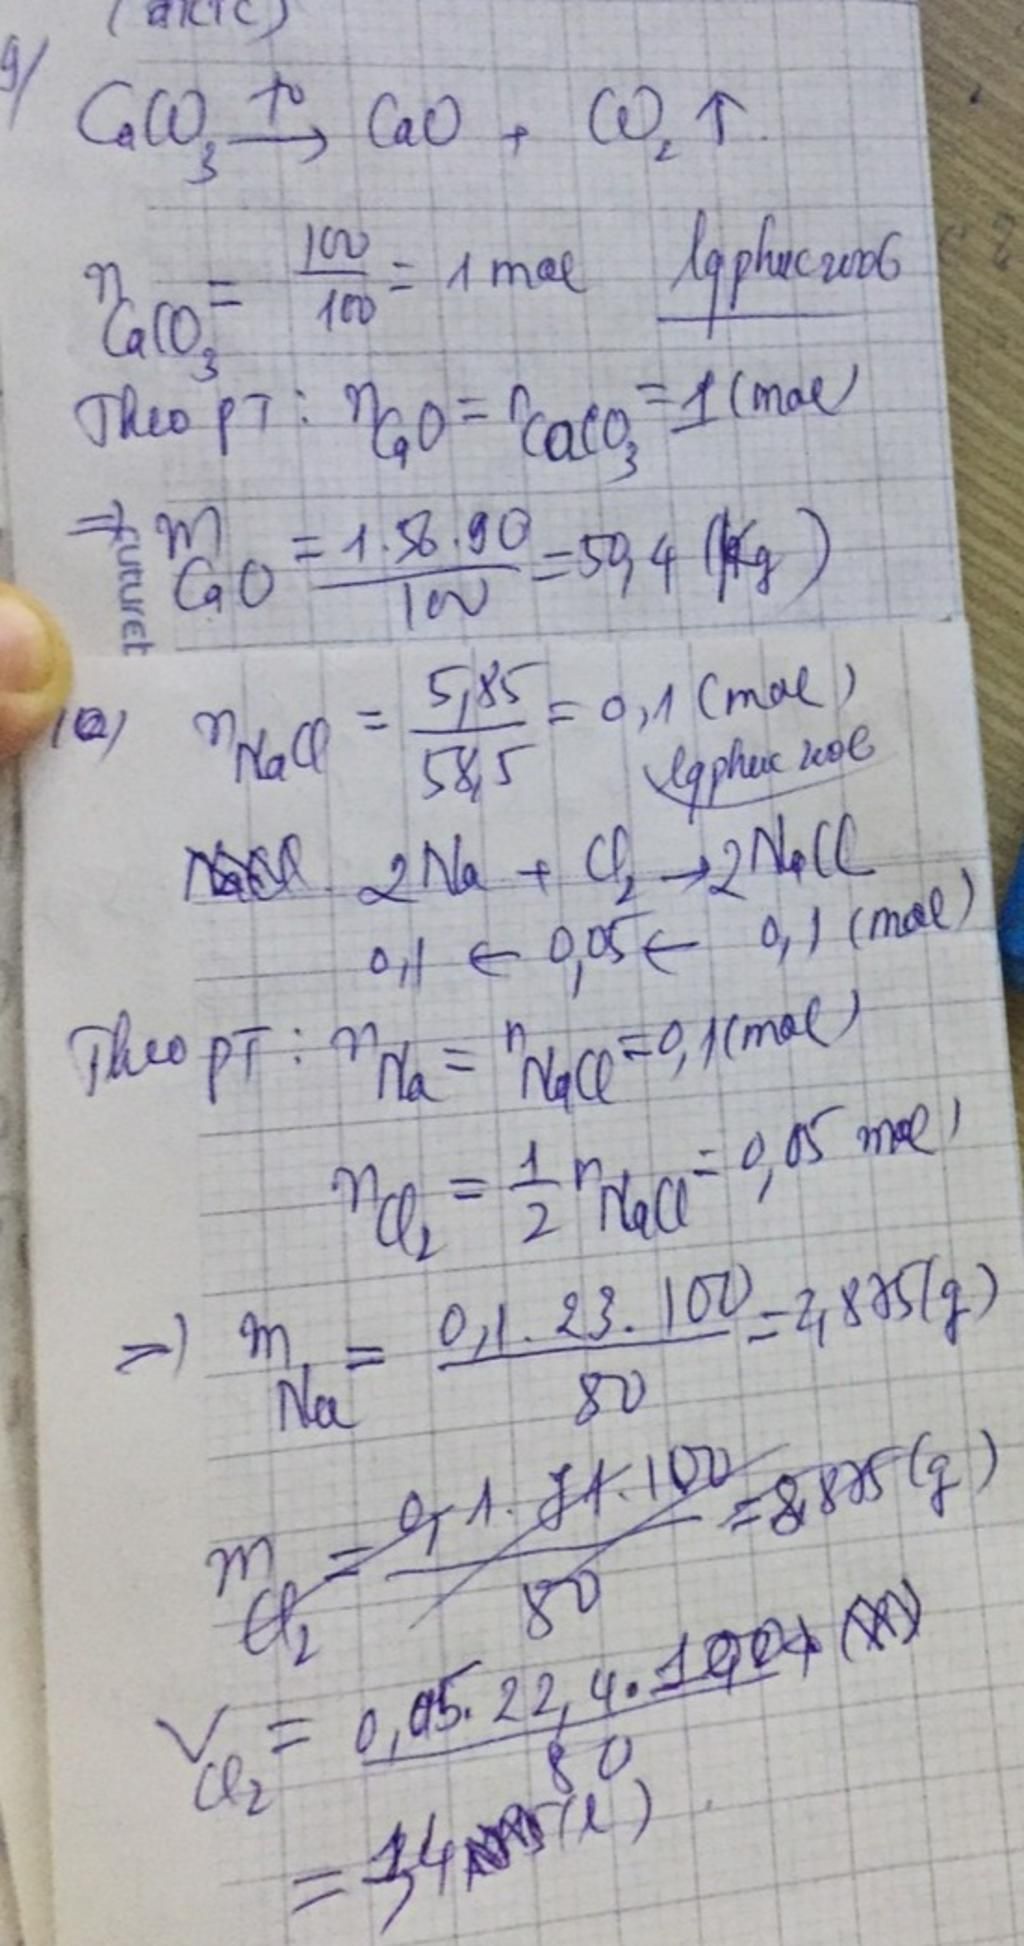 (đktc)
9/ CaCO₃ —t°→ CaO + CO₂ ↑
n CaCO₃ = 100/100 = 1 mol lqphuc2006
Theo pT : n CaO = n CaCO₃ = 1 (mol)
=> m CaO = 1.56.90/100 = 50,4 (kg)
n NaCl = 5,85/58,5 = 0,1 (mol)
lqphuc2006
NaCl 2Na + Cl₂ → 2NaCl
0,1 ← 0,05 ← 0,1 (mol)
Theo pT : n Na = n NaCl = 0,1 (mol)
n Cl₂ = 1/2 n NaCl = 0,05 mol)
=) m Na = 0,1.23.100/80 = 2,875 (g)
m Cl₂ = 0,1.71.100/80 = 8,875 (g)
V Cl₂ = 0,05.22,4.100/80
= 1,4 (l)